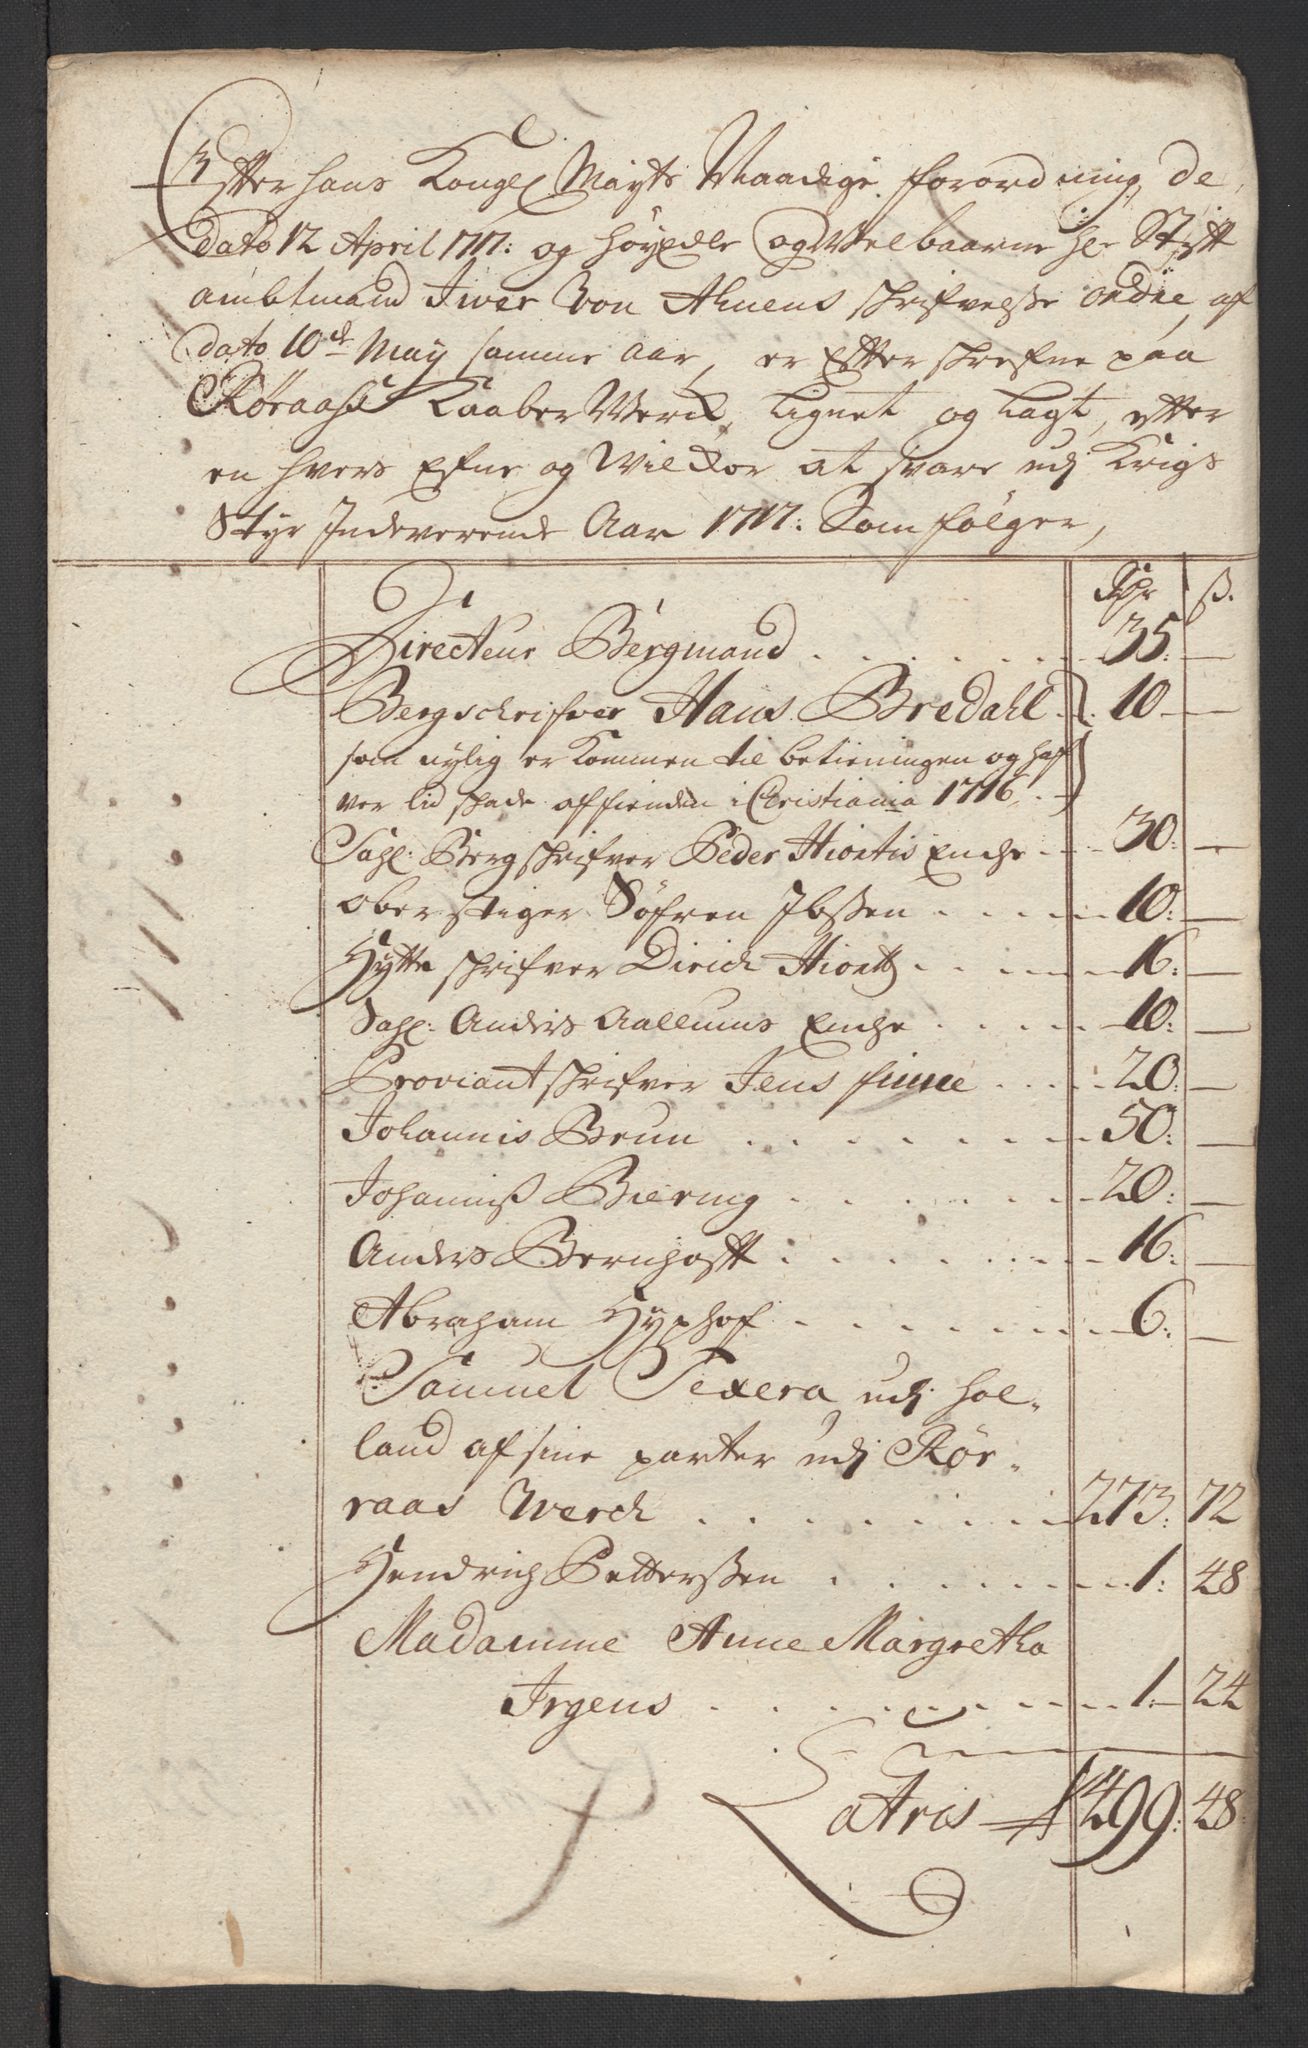 Efter hans Kongl Mayts Naadige forordning, de
dato 12 April 1717: og höyædle og Velbaarne hr Stift
ambtmand Iver Von Ahnens schrifvelsse ordre, af
dato 10de May samme aar, er Efterschrefne paa
Röraass Kaaber Werck, lignet og lagt, efter
en hvers Efne og Wilckor at svare udj Krigs
Styr Indeverende Aar 1717: Som fölger,
Rdr ß.
Directeur Bergmand . . . . . . . 35: —
Bergschrifver Hans Bredahl . 10 —
som nylig er kommen til betieningen og haf
ver lid skade af fienden i Christiania 1716.
Sahl: Bergschrifver Peder Hiortis Enche . . . 30: —
ober stiger Söfren Ibssen . . . . . 10: —
Hytte schrifver Dirich Hiort . . . . . 16: —
Sahl: Anders Aallums Enche . . . . . 10: —
Proviantschrifver Jens finne . . . . 20: —
Johannis Brun . . . . . . . . 50: —
Johanniß Biering . . . . . . . 20: —
Anders Bernhoft . . . . . . . 16: —
Abraham Hyphof . . . . . . . 6: —
Samuel Texera udj Hol-
land af sine parter udj Rör-
raas Werck . . . . . . . . 273: 72
Hendrich Petterßen . . . . . . . 1: 48
Madamme Anne Margretha
Irgens . . . . . . . . . 1: 24
Latris 499: 48